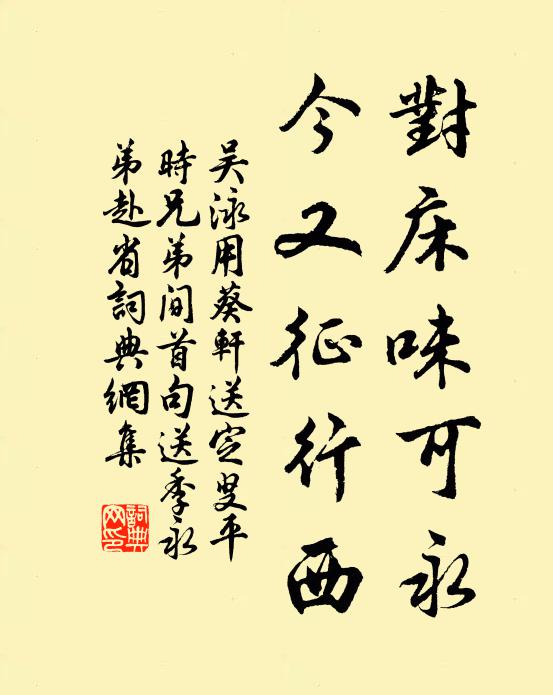 對床味可永
今又征行西
吴泳用葵軒送定叟平
時兄弟间首句送季永
弟赴省詞典網集
詞典網印